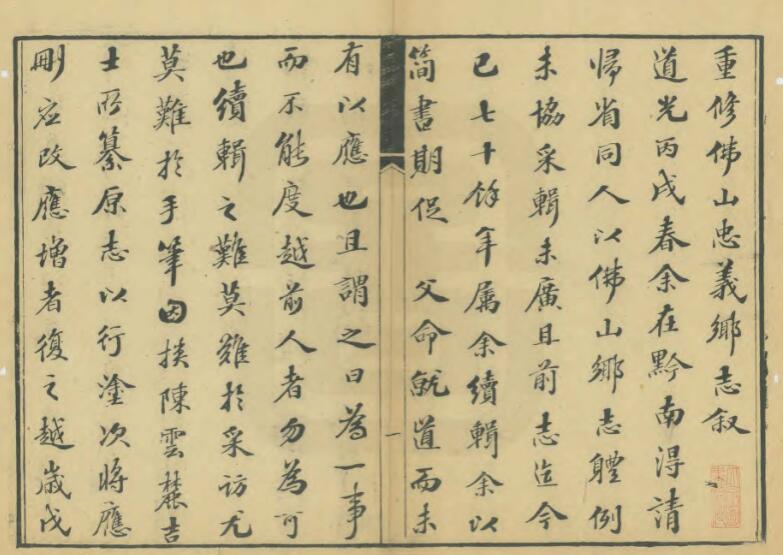 重修佛山忠義鄉志叙
道光丙戌春余在黔南得請
歸省同人以佛山鄉志體例
未協采輯未廣且前志迄今
已七十餘年属余續輯余以
简書期促 父命就道而未
一
有以應也且謂之曰為一事
而不能度越前人者勿為可
也續輯之難莫難扵采訪尤
莫難扵手筆因挨陳雲麓吉
士所纂原志以行塗次將應
刪應改應增者復之越嵗戊